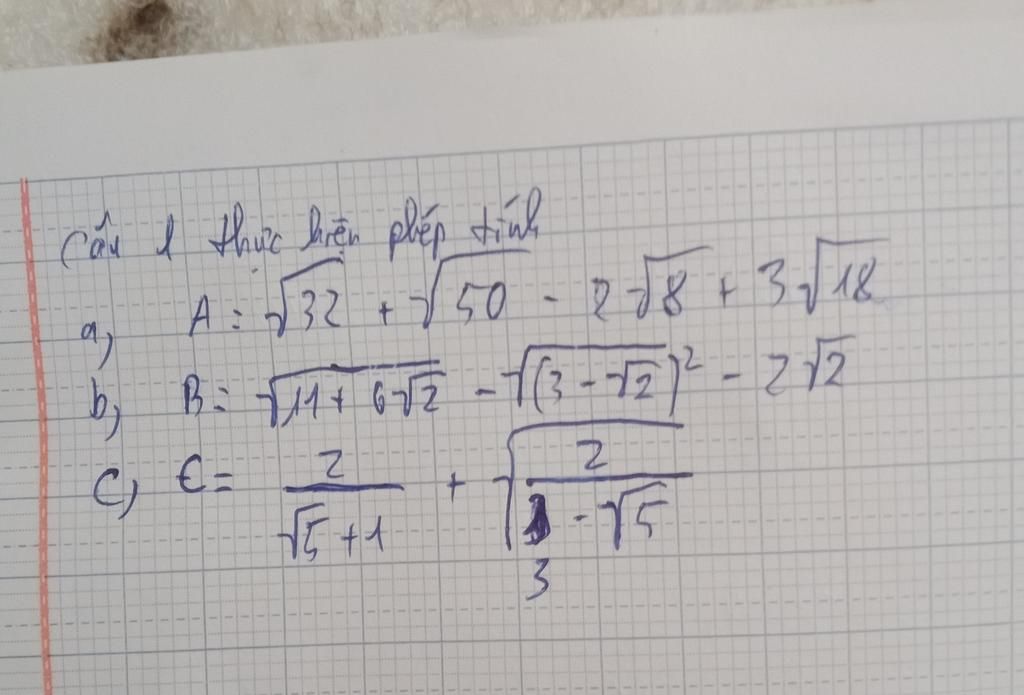 Câu 1 thực hiện phép tính
a, A = √32 + √50 - 2√8 + 3√18
b, B = √(11 + 6√2) - √(3 - √2)² - 2√2
c, C = 2/(√5 + 1) + √(2/(3 - √5))